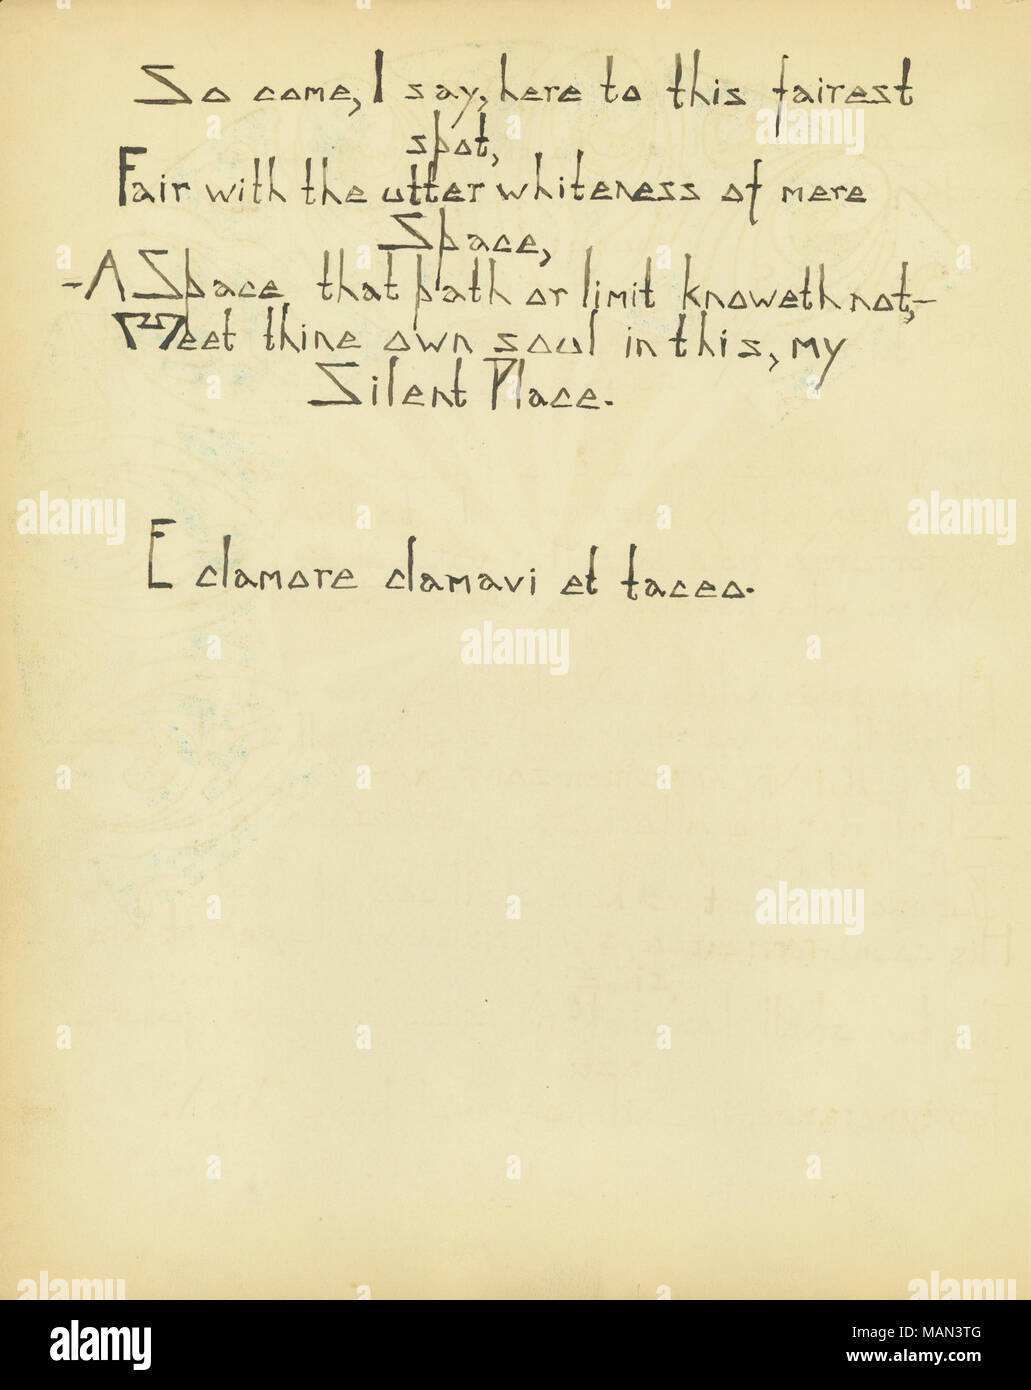 So come, I say, here to this fairest
spot,
Fair with the utter whiteness of mere
Space,
-A Space that path or limit knoweth not,-
Meet thine own soul in this, my
Silent Place.
E clamore clamavi et taceo.
alamy
Image ID: MAN3TG
www.alamy.com